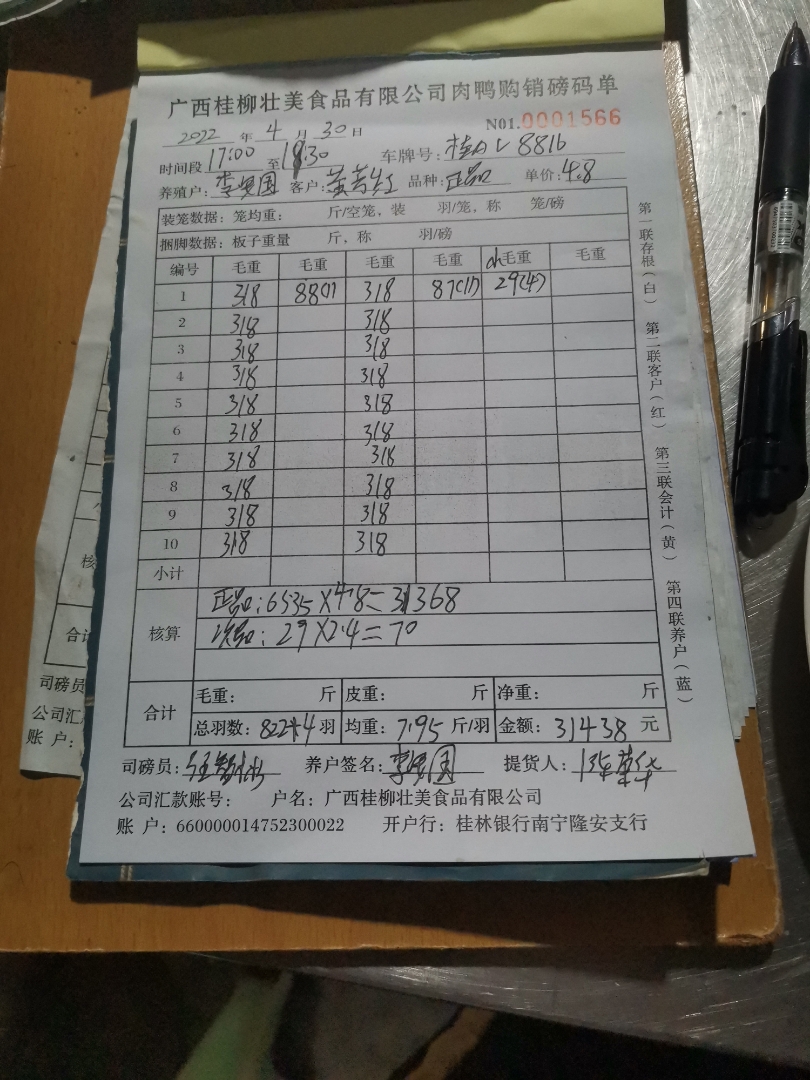 广西桂柳壮美食品有限公司肉鸭购销磅码单
2022 年 4 月 30 日 N01.0001566
时间段 17:00 至 18:30 车牌号: 8816
养殖户: 李 国 客户: 黄 红 品种: 正品 单价: 4.8
装笼数据: 笼均重: 斤/空笼, 装 羽/笼, 称 笼/磅
捆脚数据: 板子重量 斤, 称 羽/磅
编号 毛重 毛重 毛重 毛重 毛重 毛重
1 318 88(11) 318 87(11) 29(4)
2 318 318
3 318 318
4 318 318
5 318 318
6 318 318
7 318 318
8 318 318
9 318 318
10 318 318
小计
核算 正品: 6535×4.8=31368
次品: 29×2.4=70
合计 毛重: 斤 皮重: 斤 净重: 斤
总羽数: 822+4 羽 均重: 7.95 斤/羽 金额: 31438 元
司磅员: 养户签名: 李 国 提货人: 华
公司汇款账号: 户名: 广西桂柳壮美食品有限公司
账 户: 660000014752300022 开户行: 桂林银行南宁隆安支行
第一联存根(白) 第二联客户(红) 第三联会计(黄) 第四联养户(蓝)
核
合计
司磅员
公司汇
账 户: